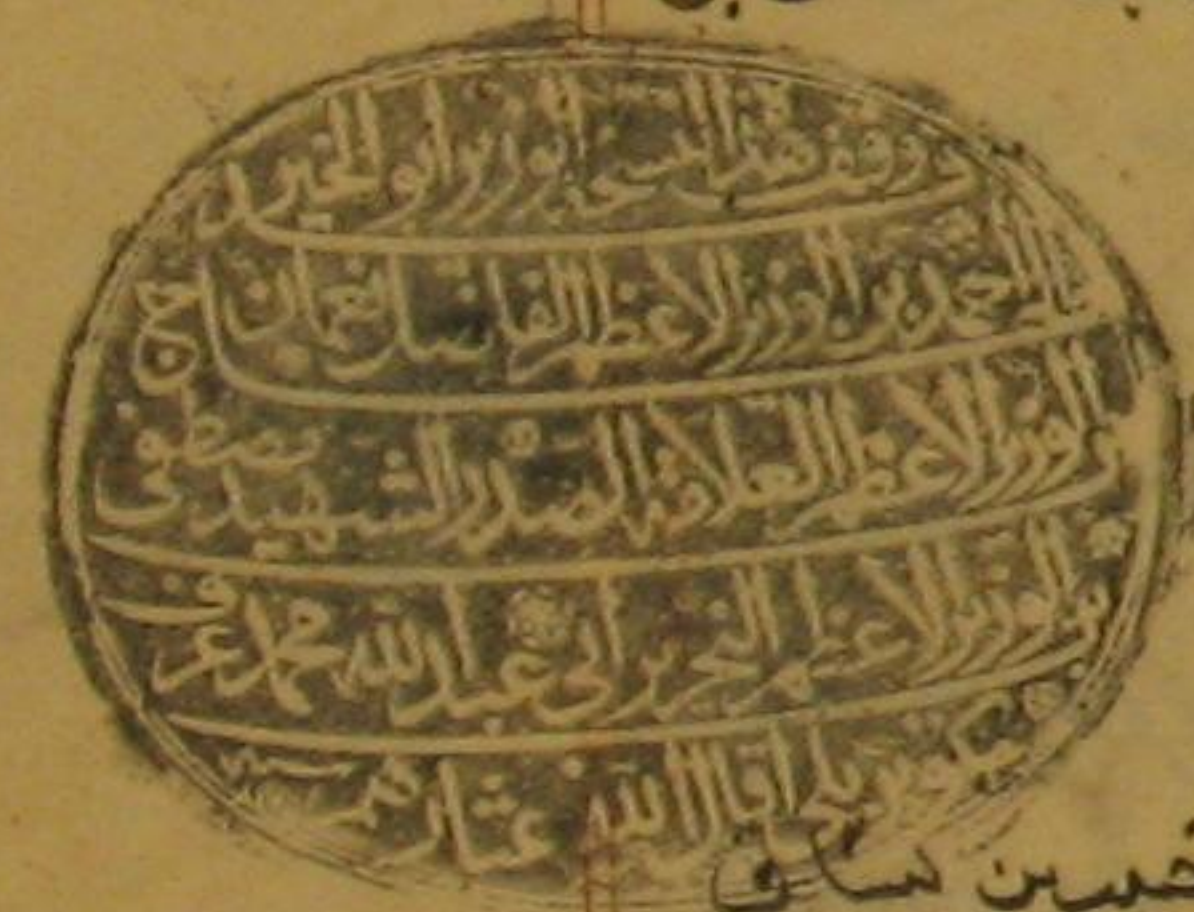 قد وقف هذه النسخة الوزير ابو الخير
الحاج احمد بن الوزير الاعظم الفاضل نعمان
بن الوزير الاعظم العلامة الصدر الشهيد مصطفى
بن الوزير الاعظم النحرير ابي عبد الله محمد عرف
بكوبريلي اقال الله عثارهم